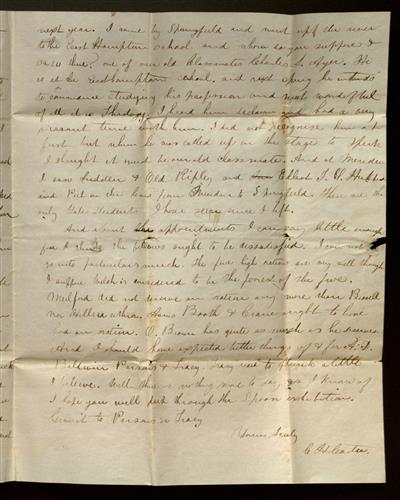 next year. I came by Springfield and went up the river
to the East Hampton school and whom do you suppose I
saw there? one of our old Classmates Charles L. Ayer. He
is at the Easthampton school, and next spring he intends
to commence studying his profession and most wonderful
of all it is Theology. I heard him declaim and had a very
pleasant time with him. I did not recognise him at
first but when he was called up on the stage to speak
I thought it must be our old classmate. And at Meriden
I saw and Old Ripley and Elliot
and Put on the cars from Meriden to Springfield. these are the
only Yale Students I have seen since I left.
And about the appointments I can say little enough
for I think the fellows ought to be dissatisfied. I can not
go into particulars much. The five high orations are very well though
I suppose Welch is considered to be the poorest of the five.
Medford did not deserve an oration any more than Bissell
nor Hollis either. Booth & Crane ought to have
had an oration. O. Brown has quite as much as he deserves.
And I should have expected better things of
Baldwin Parsons & Tracy. Tracy used to a little
I believe. Well there is nothing more to say as I know of
I hope you will put through the Spoon exhibition.
Give it to Parsons & Tracy
Yours Truly